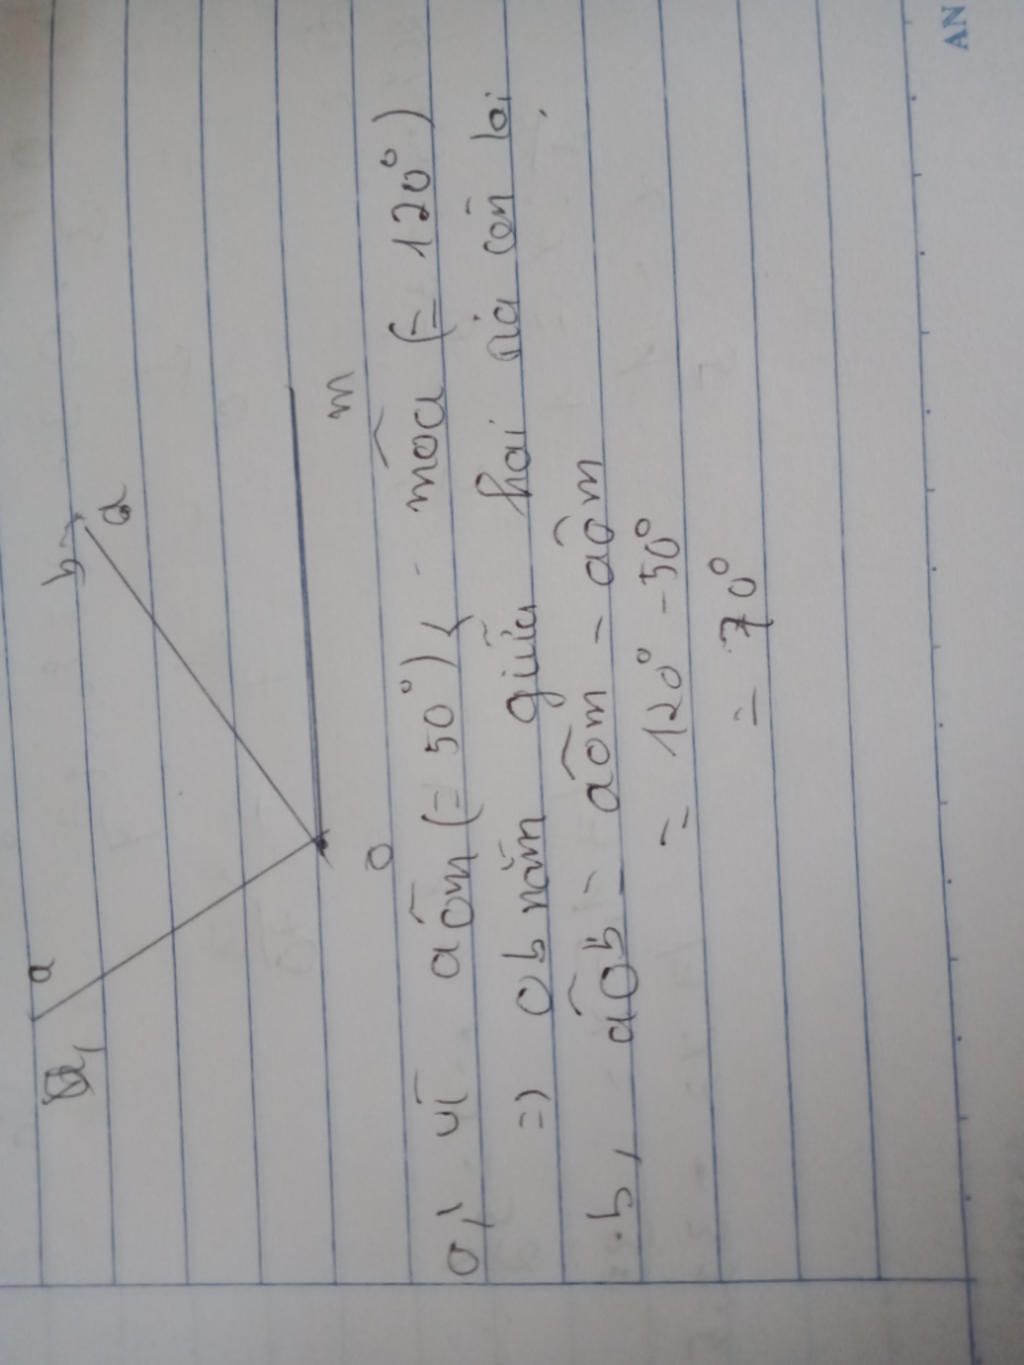 a
b
a
m
O
a, vì aÔm (= 50°) < môa (= 120°)
=> Ob nằm giữa hai tia còn lại
b, aÔb = aÔm - aÔm
= 120° - 50°
= 70°
AN